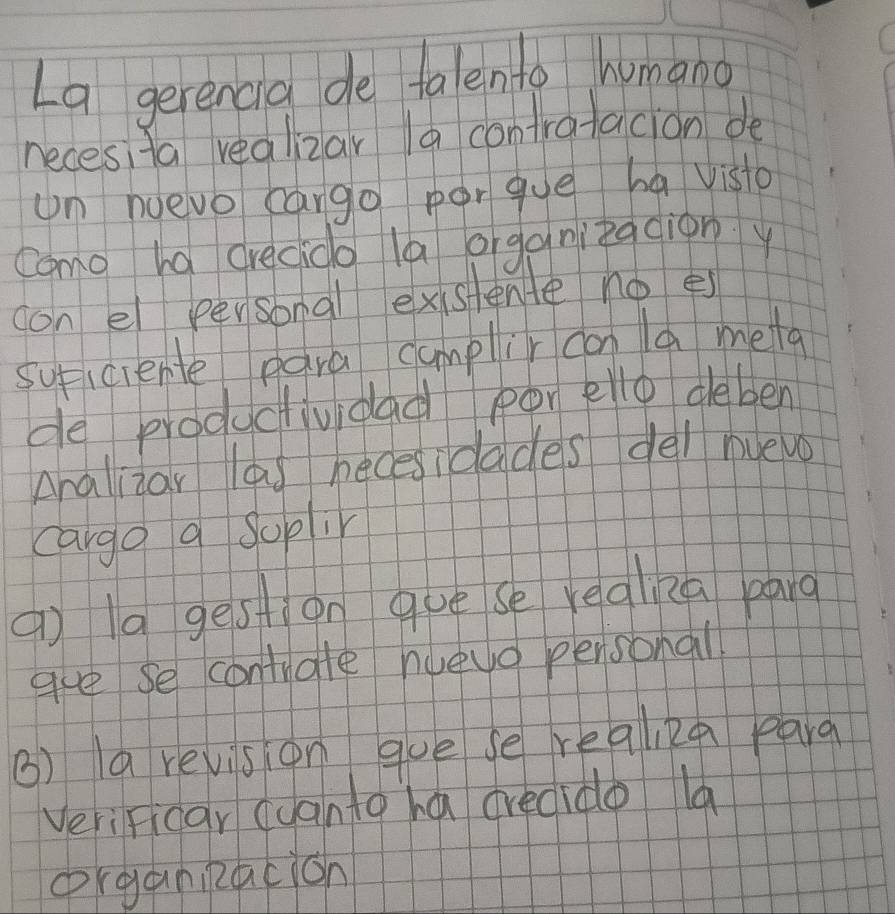 La gerencia de talento humano
necesita realizar la contratacion de
un nuevo cargo por que ha visto
como ha crecido la organizacion y
con el personal existente no es
suficiente para cumplir con la meta
de productividad por ello deben
Analizar las necesidades del nuevo
cargo a suplir
a) la gestion que se realiza para
que se contrate nuevo personal.
B) la revision que se realiza para
verificar cuanto ha crecido la
organizacion